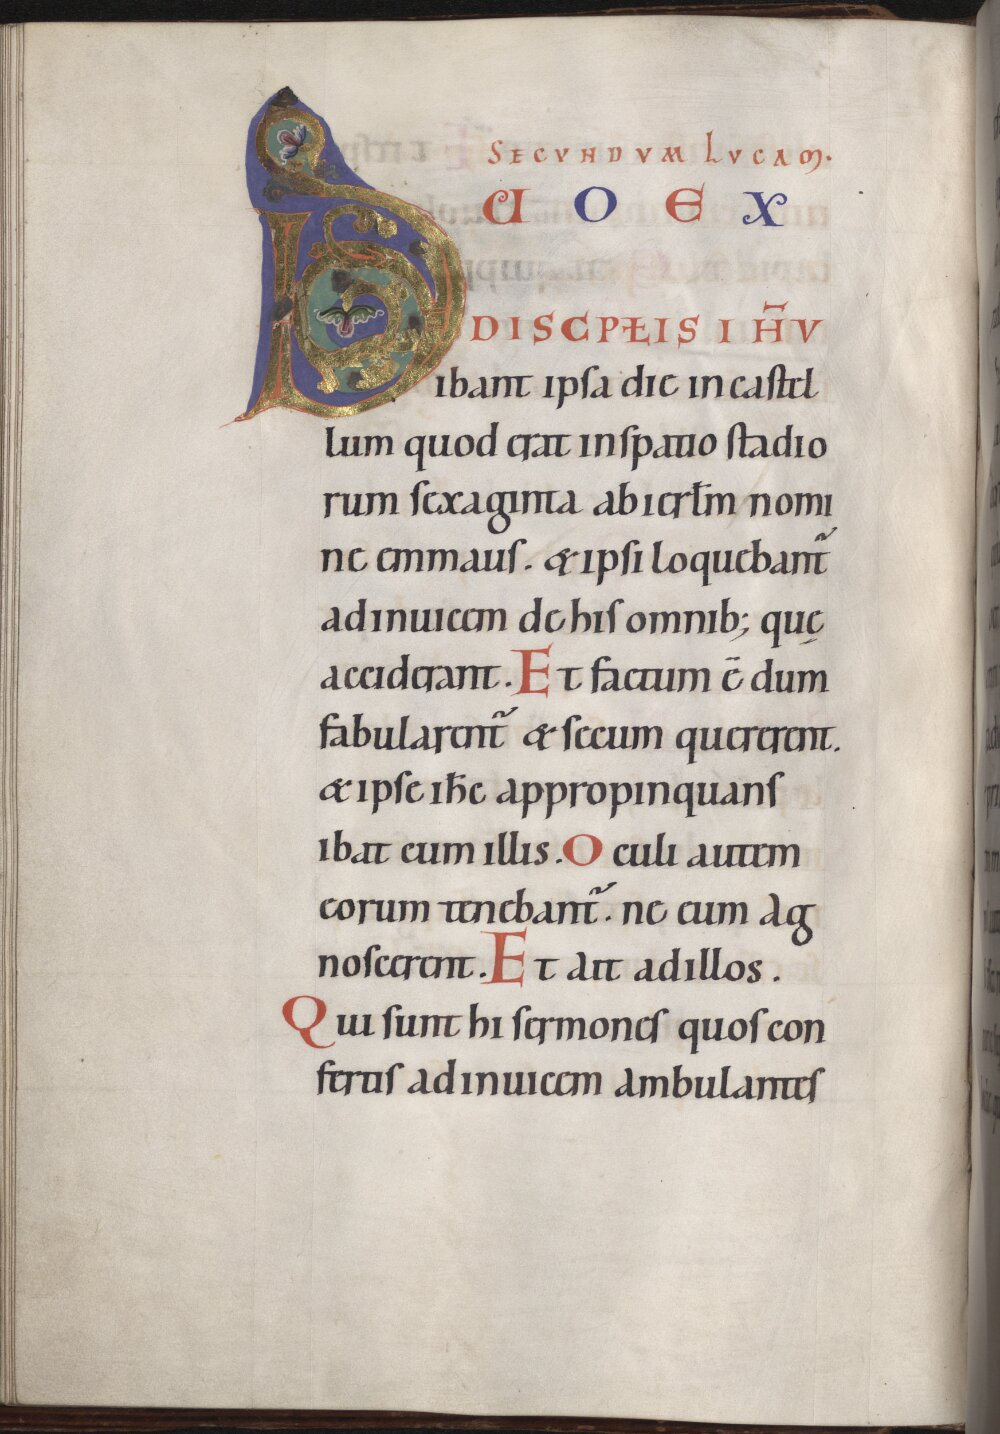 SECUNDUM LUCAM.
DUO EX
DISCPŁIS IH̅U
ibant ipsa die in castel
lum quod erat in spatio stadio
rum sexaginta ab ierł̅m nomi
ne emmaus. & ipsi loquebant᷑
ad inuicem de his omnib; quę
acciderant. Et factum e̅ dum
fabularent᷑ & secum quererent.
& ipse ih̅c appropinquans
ibat cum illis. Oculi autem
eorum tenebant᷑. ne eum ag
noscerent. Et ait ad illos.
Qui sunt hi sermones quos con
fertis ad inuicem ambulantes